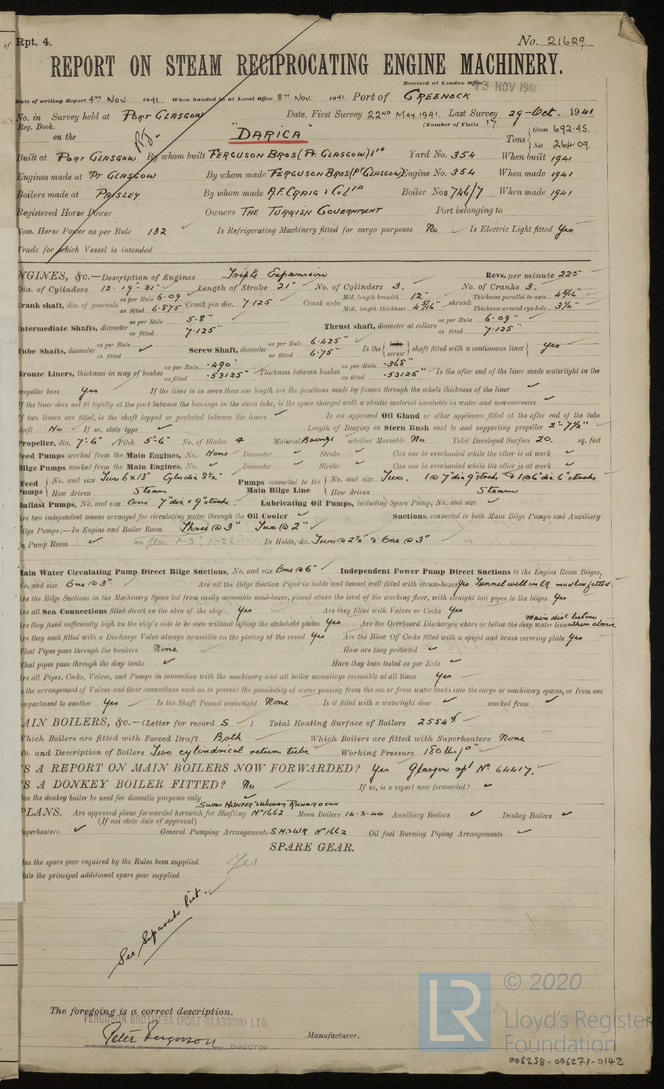 Rpt. 4. No. 21629
REPORT ON STEAM RECIPROCATING ENGINE MACHINERY.
Received at London Office 13 NOV 1941
Date of writing Report 4th Nov. 1941. When handed in at Local Office 8th Nov. 1941 Port of GREENOCK
No. in Survey held at PORT GLASGOW Date, First Survey 22ND MAY 1941. Last Survey 29-Oct. 1941
Reg. Book. (Number of Visits 17
on the "DARICA" Tons { Gross 692.45. Net 264.09.
Built at PORT GLASGOW By whom built FERGUSON BROS (PT. GLASGOW) LTD Yard No. 354 When built 1941
Engines made at PT GLASGOW By whom made FERGUSON BROS (PT GLASGOW) Engine No. 354 When made 1941
Boilers made at PAISLEY By whom made A.F. CRAIG & Co LTD Boiler Nos 746/7 When made 1941
Registered Horse Power Owners THE TURKISH GOVERNMENT Port belonging to
Nom. Horse Power as per Rule 132 Is Refrigerating Machinery fitted for cargo purposes No Is Electric Light fitted Yes
Trade for which Vessel is intended
NGINES, &c.—Description of Engines Triple Expansion Revs. per minute 225
Dia. of Cylinders 12-19-31" Length of Stroke 21" No. of Cylinders 3. No. of Cranks 3.
Crank shaft, dia. of journals as per Rule 6.09 as fitted 6.875 Crank pin dia. 7.125 Crank webs Mid. length breadth 12" Mid. length thickness 4 5/16" shrunk Thickness parallel to axis 4 5/16" Thickness around eye-hole 3 1/4"
Intermediate Shafts, diameter as per Rule 5.8" as fitted 7.125" Thrust shaft, diameter at collars as per Rule 6.09" as fitted 7.125"
Tube Shafts, diameter as per Rule as fitted Screw Shaft, diameter as per Rule 6.425" as fitted 6.75" Is the { screw } shaft fitted with a continuous liner { Yes
Bronze Liners, thickness in way of bushes as per Rule .490" as fitted .53125" Thickness between bushes as per Rule .368" as fitted .53125" Is the after end of the liner made watertight in the
propeller boss Yes If the liner is in more than one length are the junctions made by fusion through the whole thickness of the liner
If the liner does not fit tightly at the part between the bearings in the stern tube, is the space charged with a plastic material insoluble in water and non-corrosive
If two liners are fitted, is the shaft lapped or protected between the liners Is an approved Oil Gland or other appliance fitted at the after end of the tube
shaft No If so, state type Length of Bearing in Stern Bush next to and supporting propeller 2'-7 1/2"
Propeller, dia. 7'-6" Pitch 5'-6" No. of Blades 4 Material Bronze whether Moveable No Total Developed Surface 20. sq. feet
Feed Pumps worked from the Main Engines, No. None Diameter Stroke Can one be overhauled while the other is at work
Bilge Pumps worked from the Main Engines, No. Diameter Stroke Can one be overhauled while the other is at work
Feed Pumps { No. and size Two 6 x 13" Cylr dia 8 1/2" How driven Steam Pumps connected to the Main Bilge Line { No. and size Two. 1 @ 7" dia 9" stroke & 1 @ 6" dia 6" stroke How driven Steam
Ballast Pumps, No. and size One 7" dia x 9" stroke. Lubricating Oil Pumps, including Spare Pump, No. and size
Are two independent means arranged for circulating water through the Oil Cooler Suctions, connected to both Main Bilge Pumps and Auxiliary
Bilge Pumps;—In Engine and Boiler Room Three @ 3" Two @ 2"
In Pump Room In Holds, &c. Two @ 2 1/2" & One @ 3"
Main Water Circulating Pump Direct Bilge Suctions, No. and size One @ 6" Independent Power Pump Direct Suctions to the Engine Room Bilges,
No. and size One @ 3" Are all the Bilge Suction Pipes in holds and tunnel well fitted with strum-boxes Yes Tunnel well in E.R. mud box fitted.
Are the Bilge Suctions in the Machinery Space led from easily accessible mud-boxes, placed above the level of the working floor, with straight tail pipes to the bilges Yes
Are all Sea Connections fitted direct on the skin of the ship Yes Are they fitted with Valves or Cocks Yes
Are they fixed sufficiently high on the ship's side to be seen without lifting the stokehold plates Yes Are the Overboard Discharges above or below the deep water line main disc below others above
Are they each fitted with a Discharge Valve always accessible on the plating of the vessel Yes Are the Blow Off Cocks fitted with a spigot and brass covering plate Yes
What Pipes pass through the bunkers None How are they protected
What pipes pass through the deep tanks Have they been tested as per Rule
Are all Pipes, Cocks, Valves, and Pumps in connection with the machinery and all boiler mountings accessible at all times Yes
Is the arrangement of Valves and their connections such as to prevent the possibility of water passing from the sea or from water tanks into the cargo or machinery spaces, or from one
compartment to another Yes Is the Shaft Tunnel watertight None Is it fitted with a watertight door worked from
MAIN BOILERS, &c.—(Letter for record S ) Total Heating Surface of Boilers 2554
Which Boilers are fitted with Forced Draft Both Which Boilers are fitted with Superheaters None
No. and Description of Boilers Two cylindrical return tube Working Pressure 180 lb/□"
IS A REPORT ON MAIN BOILERS NOW FORWARDED? Yes Glasgow rpt No 64417.
IS A DONKEY BOILER FITTED? No If so, is a report now forwarded?
Can the donkey boiler be used for domestic purposes only
SWAN HUNTER & WIGHAM RICHARDSON
PLANS. Are approved plans forwarded herewith for Shafting No 1662 Main Boilers 14-3-40 Auxiliary Boilers Donkey Boilers
(If not state date of approval)
Superheaters General Pumping Arrangements S.H. & W.R. No 1662 Oil fuel Burning Piping Arrangements
SPARE GEAR.
Has the spare gear required by the Rules been supplied Yes
State the principal additional spare gear supplied
See Separate List.
The foregoing is a correct description.
FERGUSON BROTHERS (PORT-GLASGOW) LTD.
Peter Ferguson DIRECTOR Manufacturer.
© 2020
LR Lloyd's Register
Foundation
006258-006271-0142